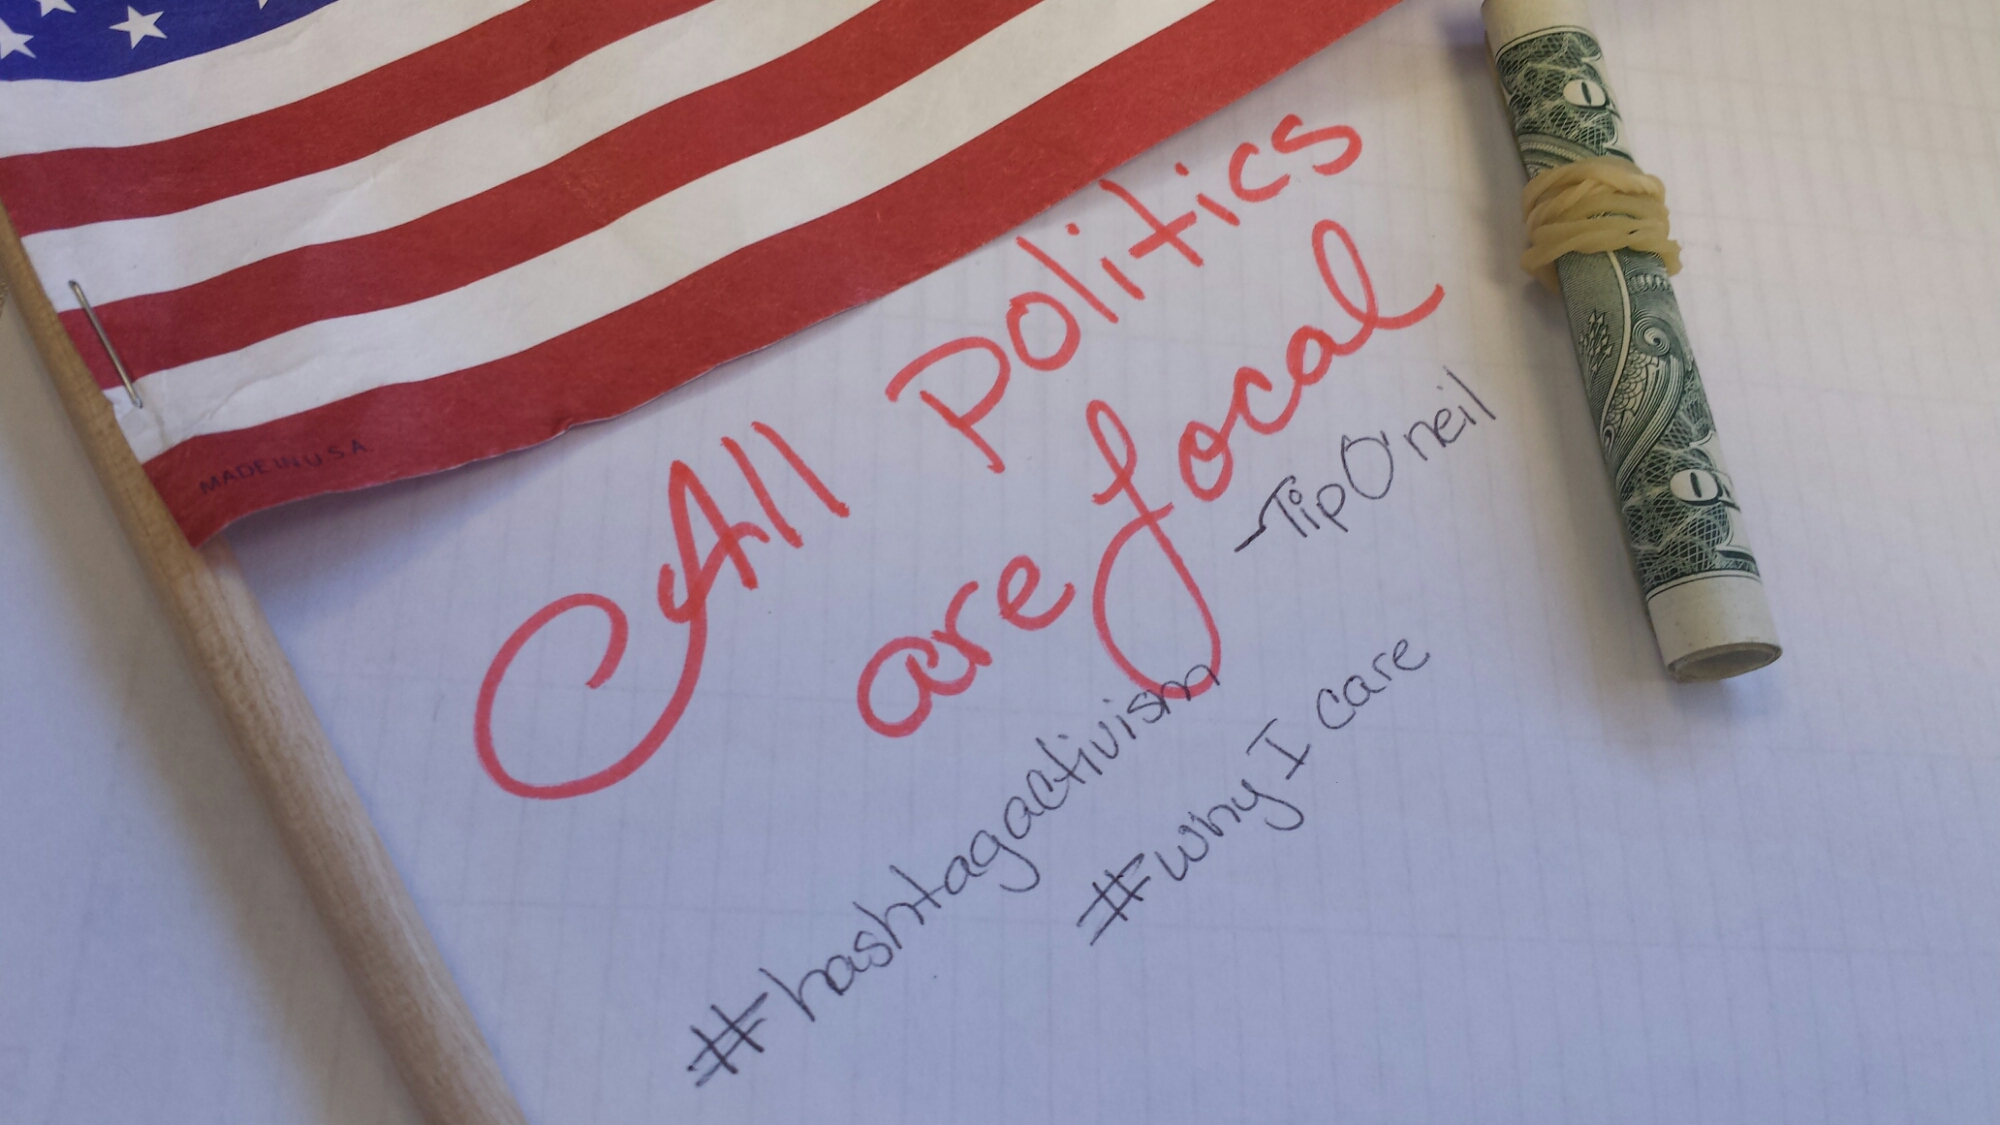 MADE IN U.S.A.
All Politics
are local
-Tip O'neil
#hashtagactivism
#why I care